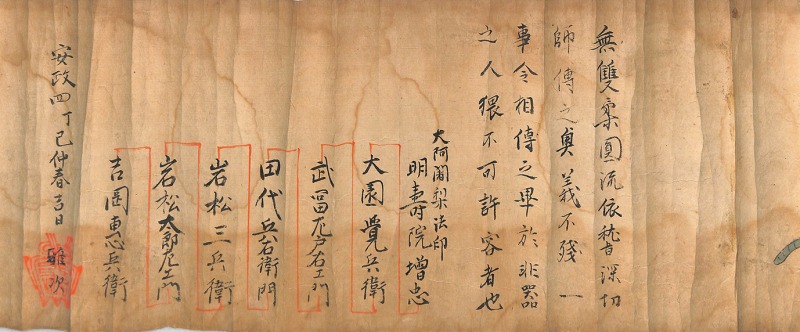 無雙柔圓流依執心深切
師傳之奥義不殘一
事令相傳之畢於非器
之人猥不可許容者也
大阿闍梨法印
明壽院増忠
大園覺兵衛
武冨尤戸右エ門
田代兵右衛門
岩松三兵衛
岩松太郎左エ門
吉岡恵兵衛
安政四丁巳仲春吉日
雖次